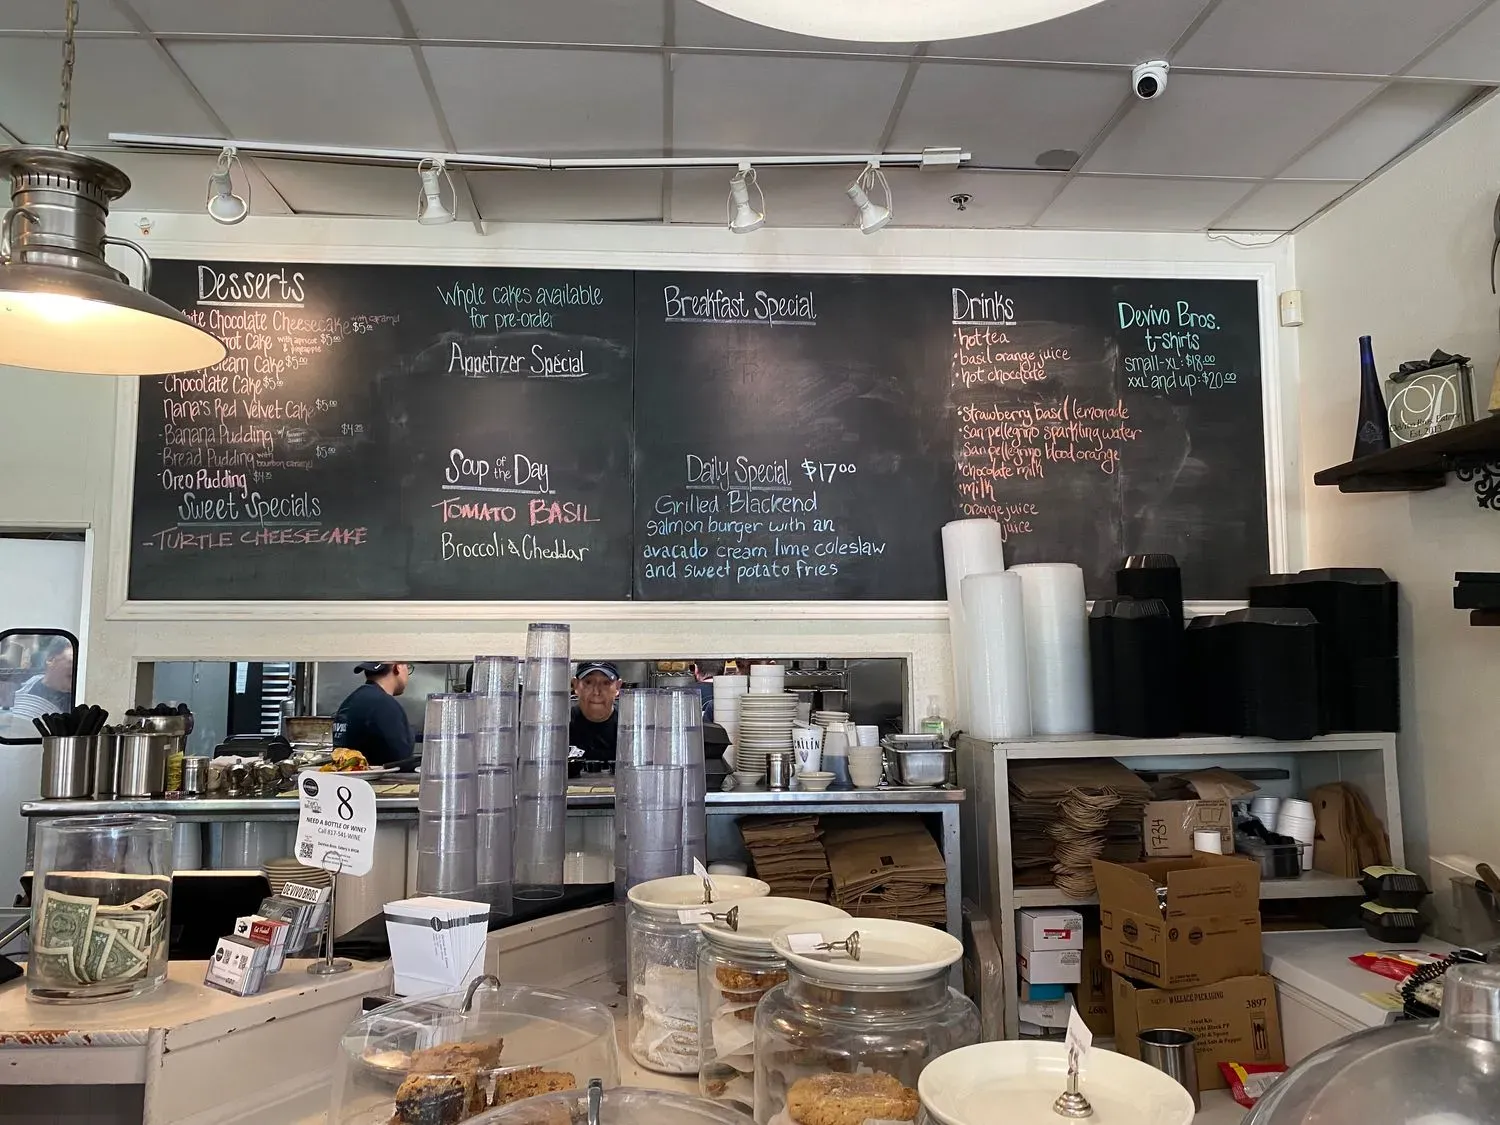 Desserts
Chocolate Cheesecake with caramel $5.00
Cake with apricot & pineapple $5.00
Cake $5.00
-Chocolate Cake $5.00
Nana's Red Velvet Cake $5.00
-Banana Pudding
-Bread Pudding with bourbon caramel $5.00
-Oreo Pudding
Sweet Specials
-TURTLE CHEESECAKE
Whole cakes available
for pre-order
Appetizer Special
Soup of the Day
TOMATO BASIL
Broccoli & Cheddar
Breakfast Special
Daily Special $17.00
Grilled Blackend
salmon burger with an
avacado cream lime coleslaw
and sweet potato fries
Drinks
•hot tea
•basil orange juice
•hot chocolate
•strawberry basil lemonade
•san pellegrino sparkling water
•san pellegrino blood orange
•chocolate milk
•milk
•orange juice
juice
Devivo Bros.
t-shirts
small-XL: $18.00
XXL and up: $20.00
8
NEED A BOTTLE OF WINE?
Call 817-541-WINE
DEVIVO BROS.
1734
WALLACE PACKAGING
3897